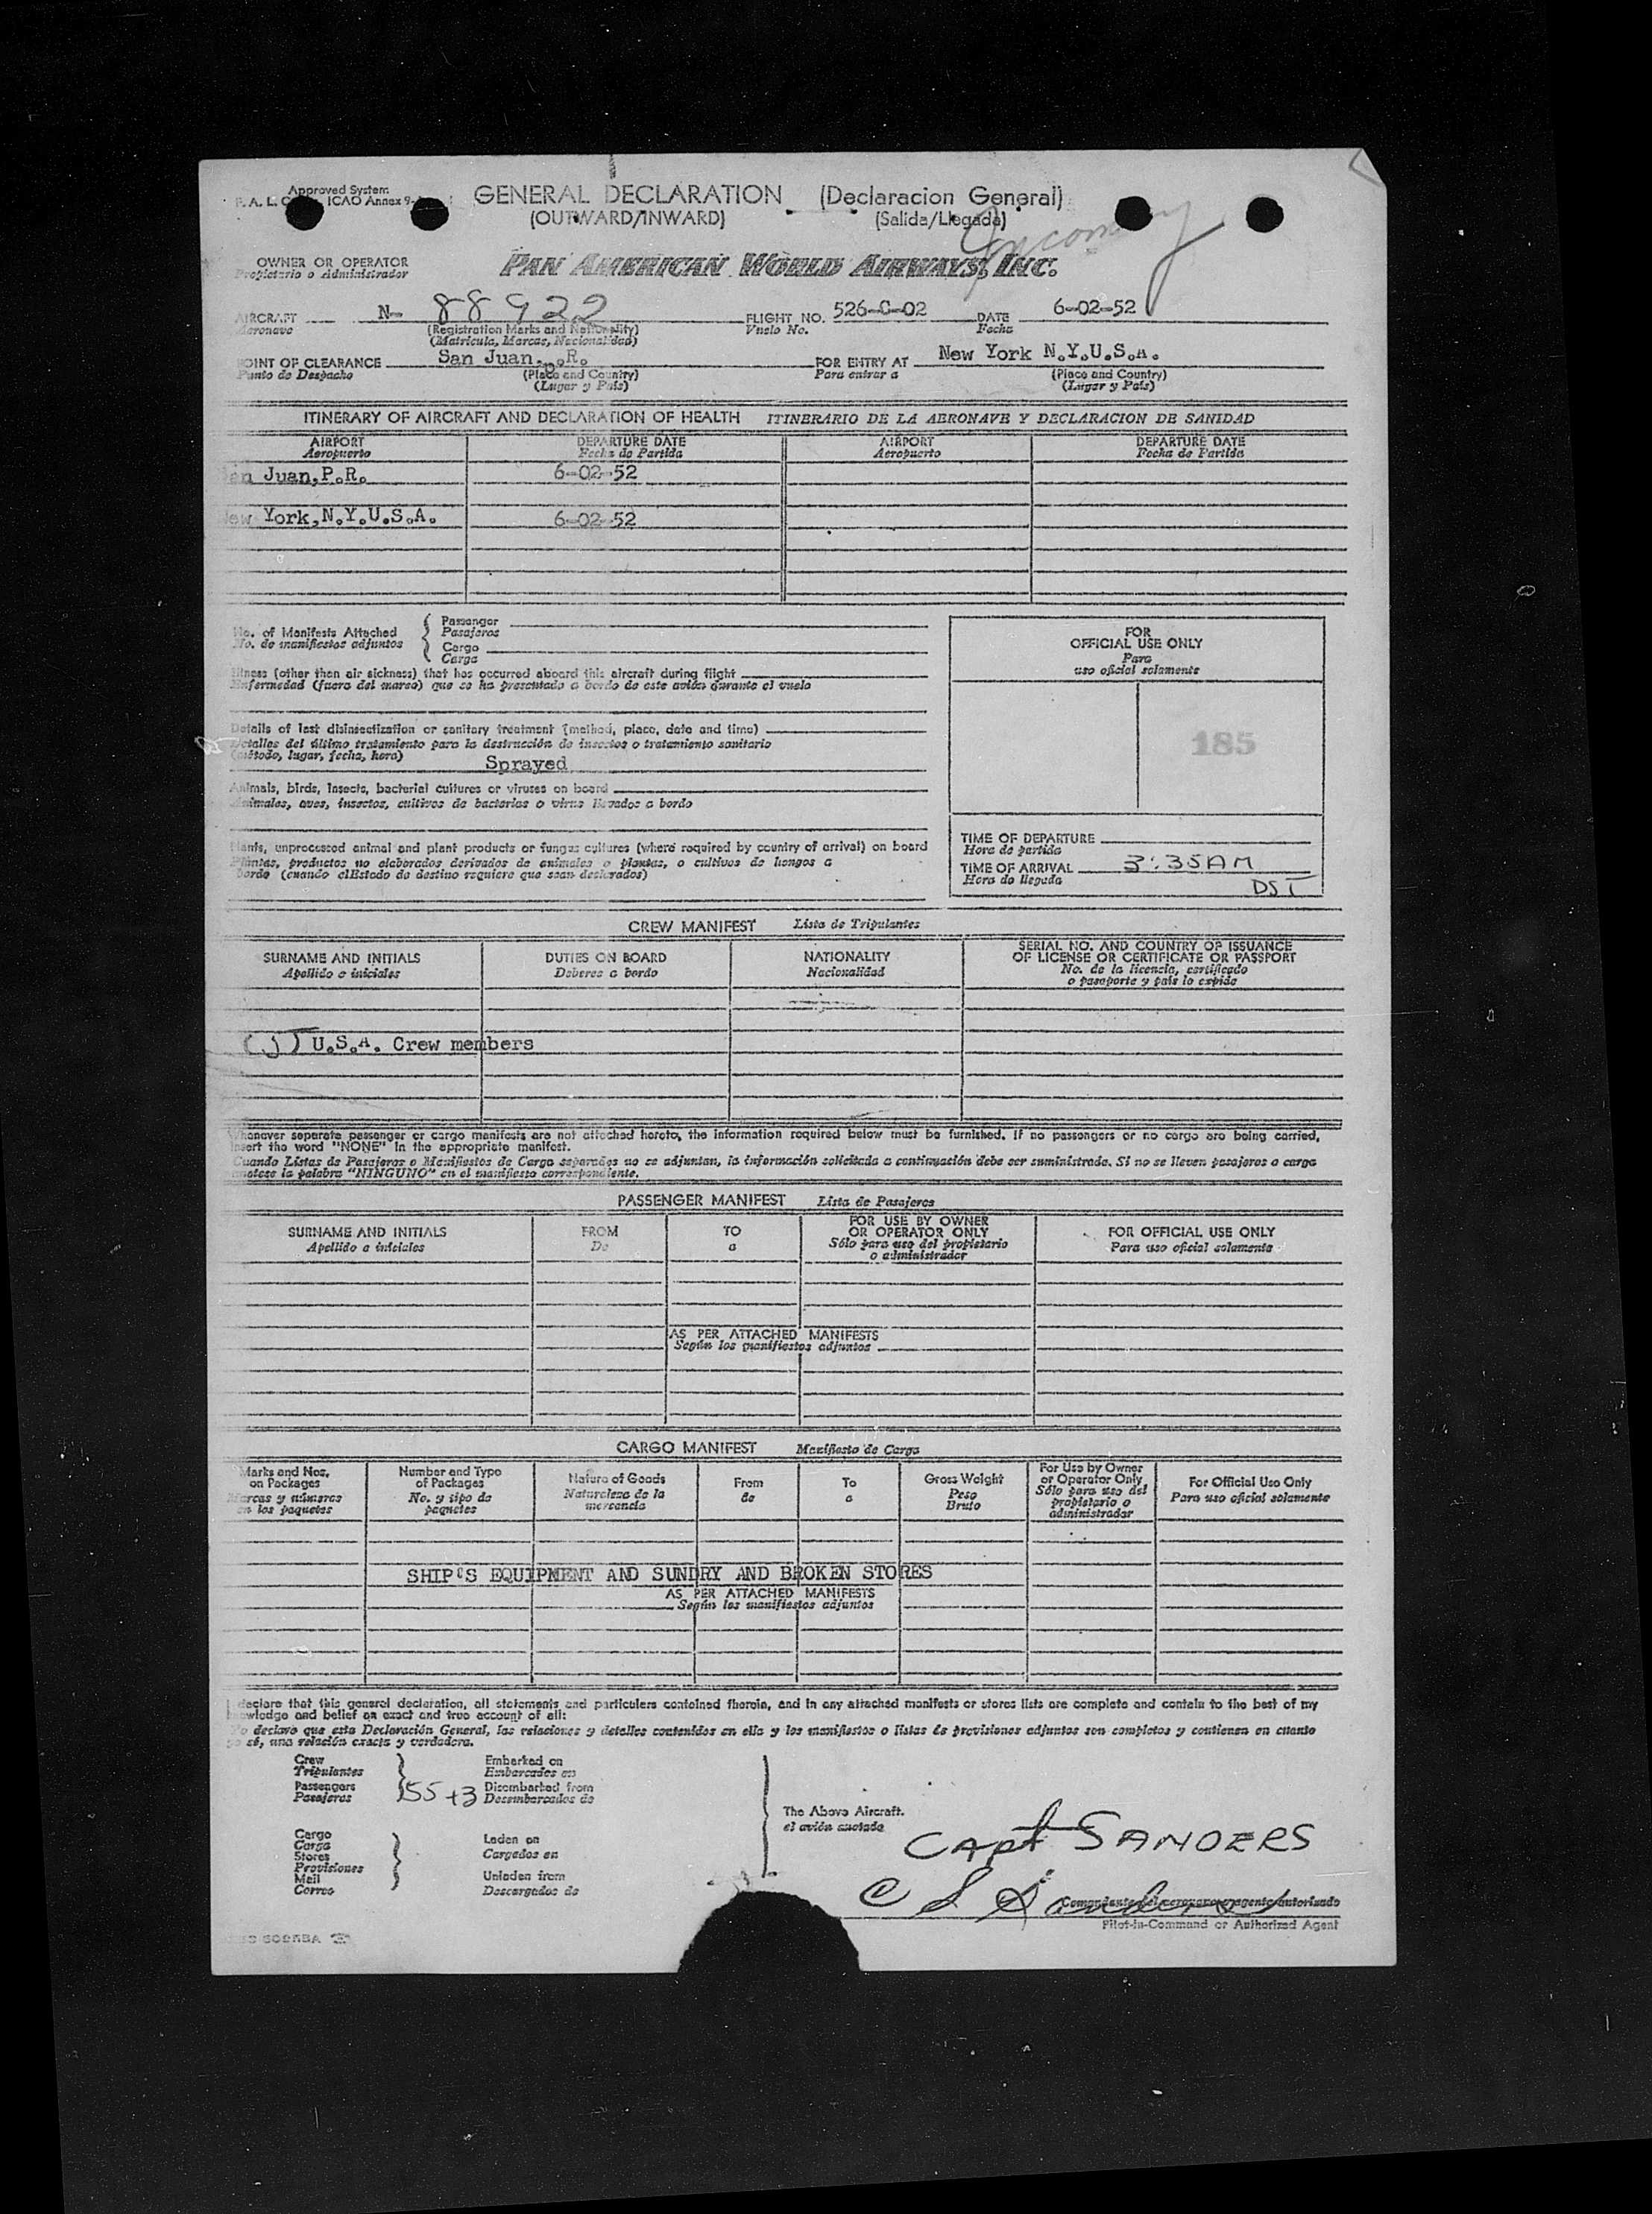 Approved System
F. A. L. ICAO Annex 9-
GENERAL DECLARATION (Declaracion General)
(OUTWARD/INWARD) (Salida/Llegada)
Incoming
OWNER OR OPERATOR
Propietario o Administrador
PAN AMERICAN WORLD AIRWAYS, INC.
AIRCRAFT N- 88922 FLIGHT NO. 526-C-02 DATE 6-02-52
Aeronave (Registration Marks and Nationality) Vuelo No. Fecha
(Matricula, Marcas, Nacionalidad)
POINT OF CLEARANCE San Juan, P.R. FOR ENTRY AT New York N.Y.U.S.A.
Punto de Despacho (Place and Country) Para entrar a (Place and Country)
(Lugar y País) (Lugar y País)
ITINERARY OF AIRCRAFT AND DECLARATION OF HEALTH ITINERARIO DE LA AERONAVE Y DECLARACION DE SANIDAD
AIRPORT DEPARTURE DATE AIRPORT DEPARTURE DATE
Aeropuerto Fecha de Partida Aeropuerto Fecha de Partida
San Juan,P.R. 6-02-52
New York,N.Y.U.S.A. 6-02-52
No. of Manifests Attached
No. de manifiestos adjuntos
Passenger
Pasajeros
Cargo
Carga
Illness (other than air sickness) that has occurred aboard this aircraft during flight
Enfermedad (fuera del mareo) que se ha presentado a bordo de este avión durante el vuelo
Details of last disinsectization or sanitary treatment (method, place, date and time)
Detalles del último tratamiento para la destrucción de insectos o tratamiento sanitario
(método, lugar, fecha, hora)
Sprayed
Animals, birds, insects, bacterial cultures or viruses on board
Animales, aves, insectos, cultivos de bacterias o virus llevados a bordo
Plants, unprocessed animal and plant products or fungus cultures (where required by country of arrival) on board
Plantas, productos no elaborados derivados de animales o plantas, o cultivos de hongos a
bordo (cuando elEstado de destino requiere que sean declarados)
FOR
OFFICIAL USE ONLY
Para
uso oficial solamente
185
TIME OF DEPARTURE
Hora de partida
TIME OF ARRIVAL 3:35AM
Hora de llegada DST
CREW MANIFEST Lista de Tripulantes
SURNAME AND INITIALS DUTIES ON BOARD NATIONALITY SERIAL NO. AND COUNTRY OF ISSUANCE
OF LICENSE OR CERTIFICATE OR PASSPORT
Apellido e iniciales Deberes a bordo Nacionalidad No. de la licencia, certificado
o pasaporte y país lo expide
U.S.A. Crew members
Whenever separate passenger or cargo manifests are not attached hereto, the information required below must be furnished. If no passengers or no cargo are being carried,
insert the word "NONE" in the appropriate manifest.
Cuando Listas de Pasajeros o Manifiestos de Carga separados no se adjuntan, la información solicitada a continuación debe ser suministrada. Si no se lleven pasajeros o carga
anotese la palabra "NINGUNO" en el manifiesto correspondiente.
PASSENGER MANIFEST Lista de Pasajeros
SURNAME AND INITIALS FROM TO FOR USE BY OWNER
OR OPERATOR ONLY FOR OFFICIAL USE ONLY
Apellido e iniciales De a Sólo para uso del propietario
o administrador Para uso oficial solamente
AS PER ATTACHED MANIFESTS
Según los manifiestos adjuntos
CARGO MANIFEST Manifiesto de Carga
Marks and Nos.
on Packages
Marcas y números
en los paquetes
Number and Type
of Packages
No. y tipo de
paquetes
Nature of Goods
Naturaleza de la
mercancía
From
de
To
a
Gross Weight
Peso
Bruto
For Use by Owner
or Operator Only
Sólo para uso del
propietario o
administrador
For Official Use Only
Para uso oficial solamente
SHIP'S EQUIPMENT AND SUNDRY AND BROKEN STORES
AS PER ATTACHED MANIFESTS
Según los manifiestos adjuntos
I declare that this general declaration, all statements and particulars contained therein, and in any attached manifests or stores lists are complete and contain to the best of my
knowledge and belief an exact and true account of all:
Yo declaro que esta Declaración General, las relaciones y detalles contenidos en ella y los manifiestos o listas de provisiones adjuntos son completos y contienen en cuanto
yo sé, una relación exacta y verdadera.
Crew
Tripulantes
Passengers
Pasajeros
55+3
Embarked on
Embarcados en
Disembarked from
Desembarcados de
Cargo
Carga
Stores
Provisiones
Mail
Correo
Laden on
Cargados en
Unladen from
Descargados de
The Above Aircraft.
el avión anotado
CAPT SANDERS
C S Sanders
Comandante del aeronave o agente Autorizado
Pilot-in-Command or Authorized Agent